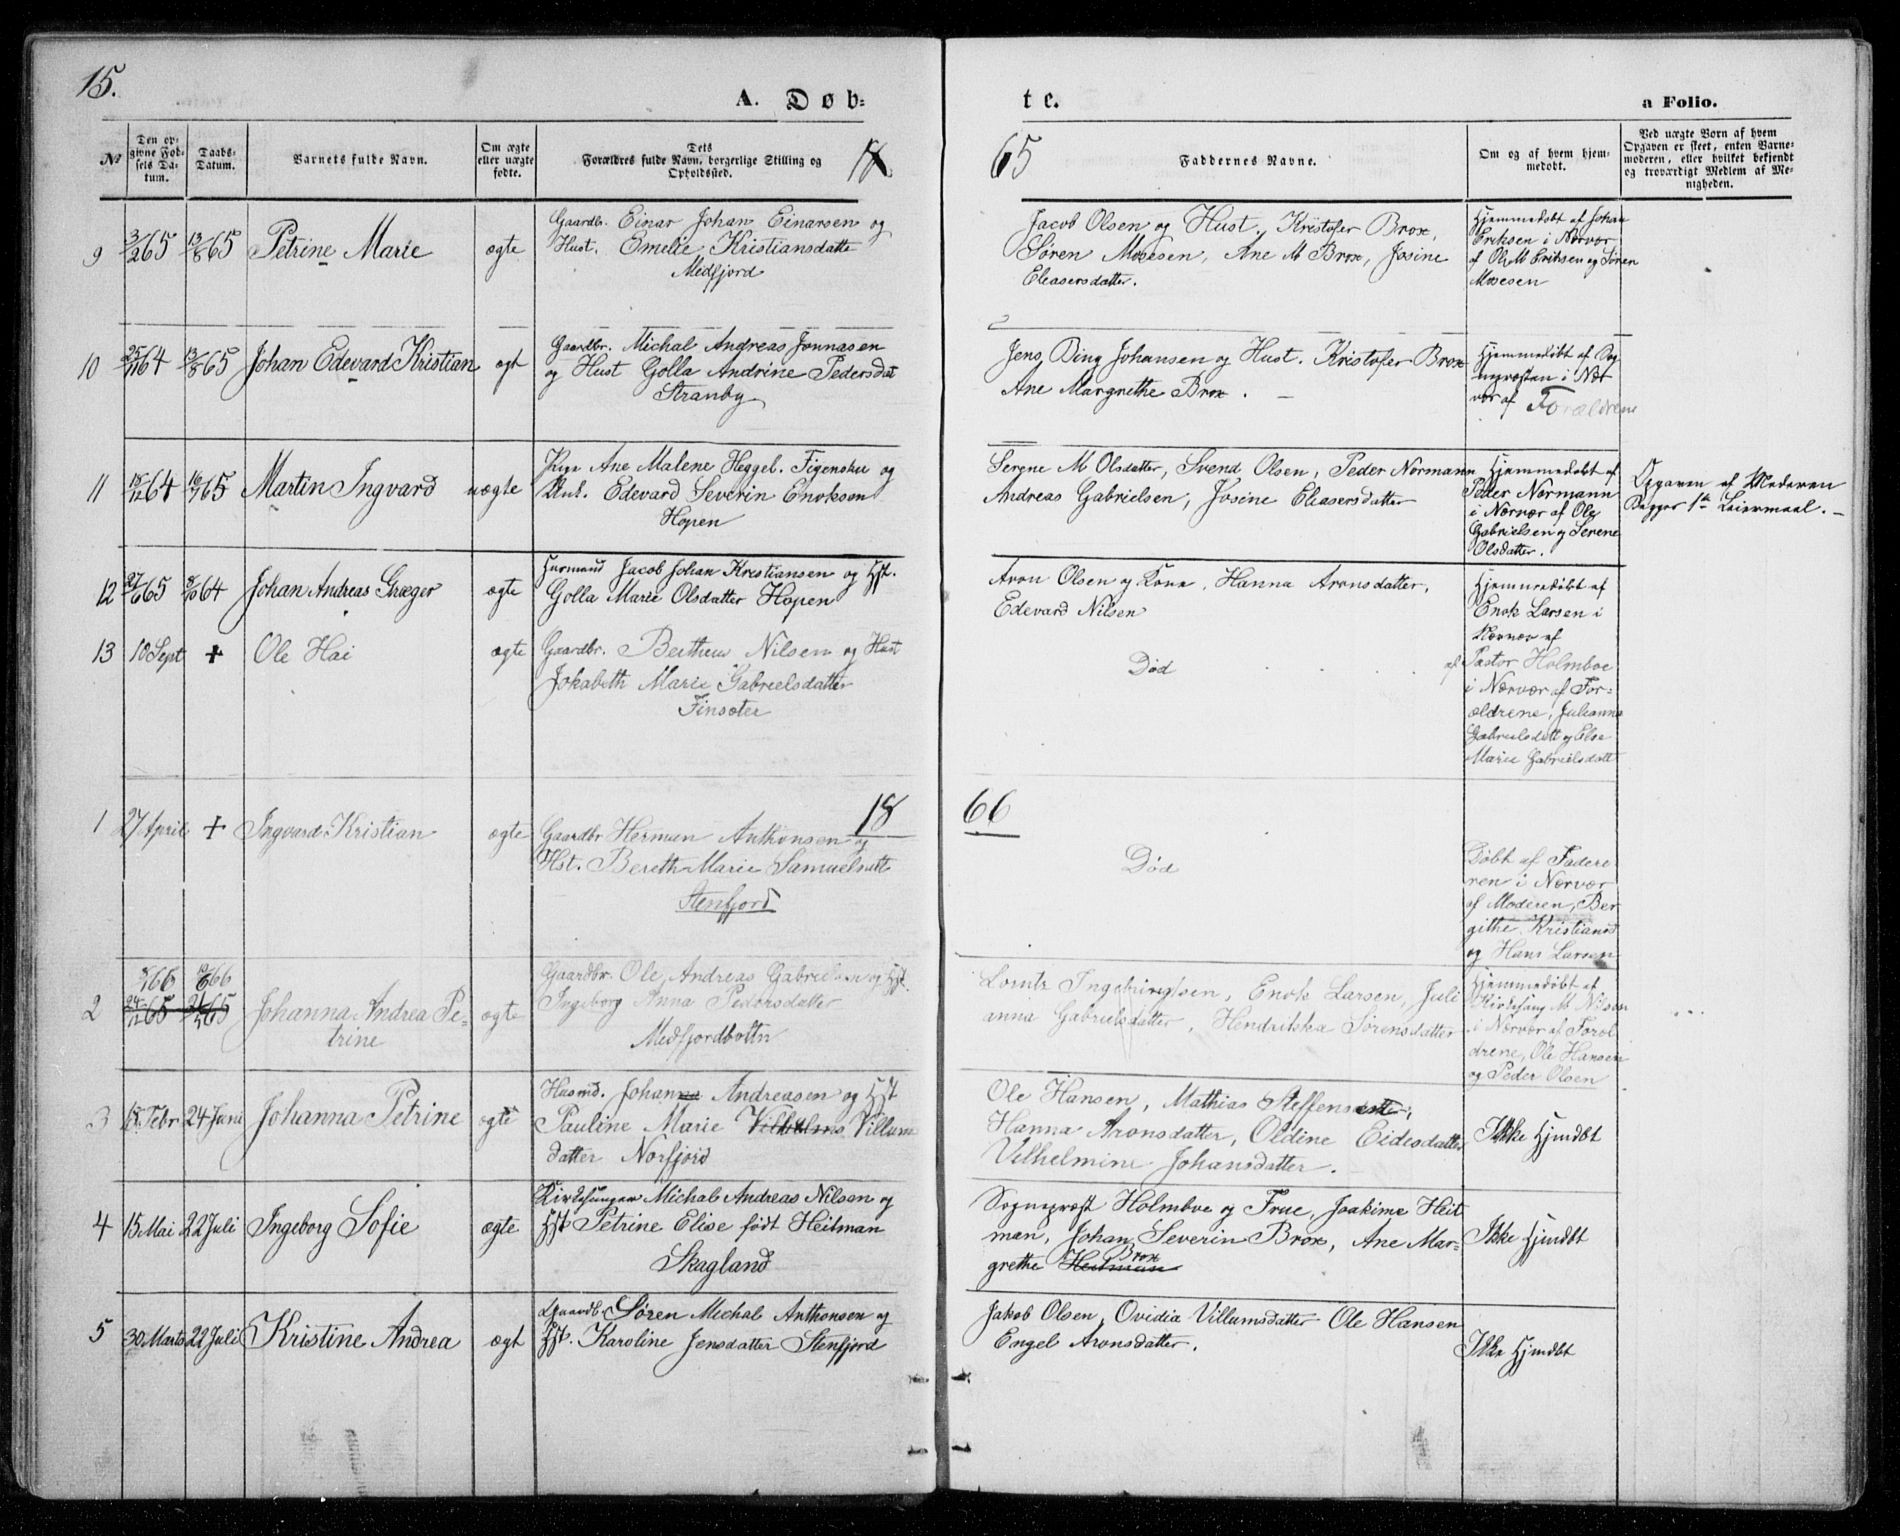 15.
A. Døb-
te.
a Folio.
No
Den op-
givne Fød-
sels Da-
tum.
Daabs-
Datum.
Barnets fulde Navn.
Om ægte
eller uægte
fødte.
Dets
Forældres fulde Navn, borgerlige Stilling og
Opholdssted.
18
65
Faddernes Navne.
Om og af hvem hjem-
medøbt.
Ved uægte Børn af hvem
Opgaven er skeet, enten Barne-
moderen, eller hvilket bekjendt
og troværdigt Medlem af Me-
nigheden.
9 3/2 65 13/8 65 Petrine Marie ægte
Gaardbr. Einar Johan Einarsen og
Hust. Emelie Kristiansdatte
Medfjord
Jacob Olsen og Hust. Kristofer Brox,
Søren Mosesen, Ane M Brox, Josine
Eleasersdatter.
Hjemmedøbt af Johan
Eriksen i Nærvær
af Ole M Eriksen og Søren
Mosesen
10 25/11 64 13/8 65 Johan Edevard Kristian ægt
Gaardbr. Michal Andreas Jonnasen
og Hust Golla Andrine Pedersdat
Stranby
Jens Ding Johansen og Hust. Kristofer Brox
Ane Margrethe Brox. —
Hjemmedøbt af Sog
nepræsten i Nær
vær af Forældrene
11 18/12 64 16/7 65 Martin Ingvard uægte
Pige Ane Malene Heggel. Figensku og
Unk. Edevard Severin Enoksen
Hopen
Serene M Olsdatter, Svend Olsen, Peder Normann
Andreas Gabrielsen, Josine Eleasersdatter
Hjemmedøbt af
Peder Normann
i Nærvær af Ole
Gabrielsen og Serene
Olsdatter.
Opgaven af Moderen
Begges 1te Leiermaal. —
12 27/6 65 8/10 64 Johan Andreas Græger ægte
Husmand Jacob Johan Kristiansen og Hst.
Golla Marie Olsdatter Hopen
Aron Olsen og Kone, Hanna Aronsdatter,
Edevard Nilsen
Hjemmedøbt af
Enok Larsen i
Nærvær af
13 10 Sept + Ole Hai ægte
Gaardbr. Bertheus Nilsen og Hust
Jokabeth Marie Gabrielsdatter
Finsæter
Død
af Pastor Holmboe
i Nærvær af For-
ældrene, Julianna
Gabrielsdatt og Else
Marie Gabrielsdatt
18 66
1 27 April + Ingvard Kristian ægte
Gaardbr Herman Anthonsen og
Hst. Bereth Marie Samuelsdtt
Stenfjord
Død
Døbt af Fadere
ren i Nærvær
af Moderen, Ber
githe Kristiansd
og Hans Larsen
2 66 66
24/12 65 65 Johanna Andrea Pe-
trine ægte
Gaardbr. Ole Andreas Gabrielsen og Hst.
Ingeborg Anna Pedersdatter
Medfjordbottn
Lorntz Ingebrigtsen, Enok Larsen, Juli
anna Gabrielsdatter, Hendrikka Sørensdatter
Hjemmedøbt af
Kirkesang M Nilsen
i Nærvær af Foræl
drene, Ole Hansen
og Peder Olsen
3 18 Febr 24 Juni Johanna Petrine ægte
Husmd. Johanna Andreasen og Hst
Pauline Marie Vilhelms Villum
datter Norfjord
Ole Hansen, Mathias Steffensen,
Hanna Aronsdatter, Oldine Eidesdatter
Vilhelmine Johansdatter.
Ikke Hjmdbt
4 15 Mai 22 Juli Ingeborg Sofie ægte
Kirkesanger Michal Andreas Nilsen og
Hst Petrine Elise født Heitman
Skagland
Sognepræst Holmboe og Frue, Joakime Heit
man, Johan Severin Brox, Ane Mar-
grethe Heitman Brox
Ikke Hjmdbt
5 30 Marts 22 Juli Kristine Andrea ægt
Gaardb. Søren Michal Anthonsen og
Hst. Karoline Jensdatter Stenfjord
Jakob Olsen, Ovidia Villumsdatter Ole Hansen
Engel Aronsdatter.
Ikke Hjmdbt